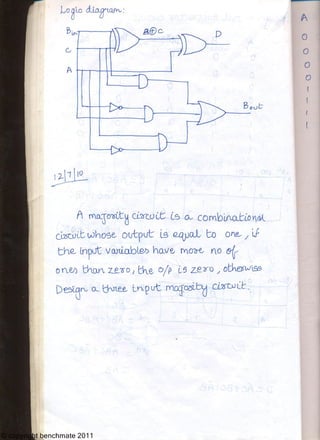 Logic diagram:
Bin
A⊕C
D
C
A
Bout
12/7/10
A majority circuit is a combinational
circuit whose output is equal to one, if
the input variables have more no of
ones than zero, the o/p is zero, otherwise
Design a three input majority circuit.
A
0
0
0
0
1
1
1
1
© copyright benchmate 2011